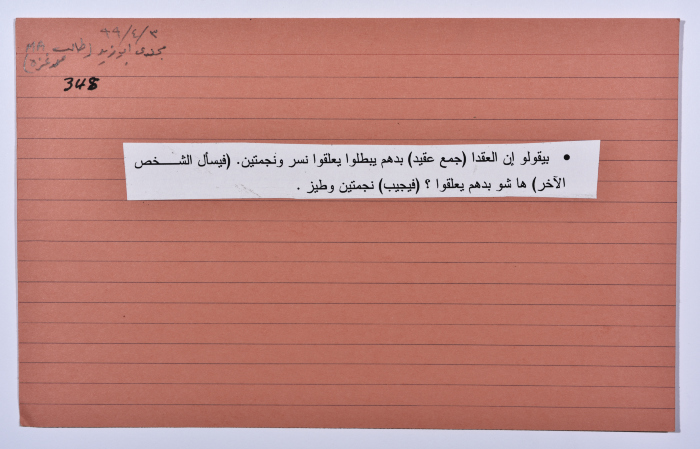 ٩٩/٢/٣
مجدى ابو زيد (طالب MA
348
• بيقولو إن العقدا (جمع عقيد) بدهم يبطلوا يعلقوا نسر ونجمتين. (فيسأل الشـــخص
الآخر) ها شو بدهم يعلقوا ؟ (فيجيب) نجمتين وطيز .